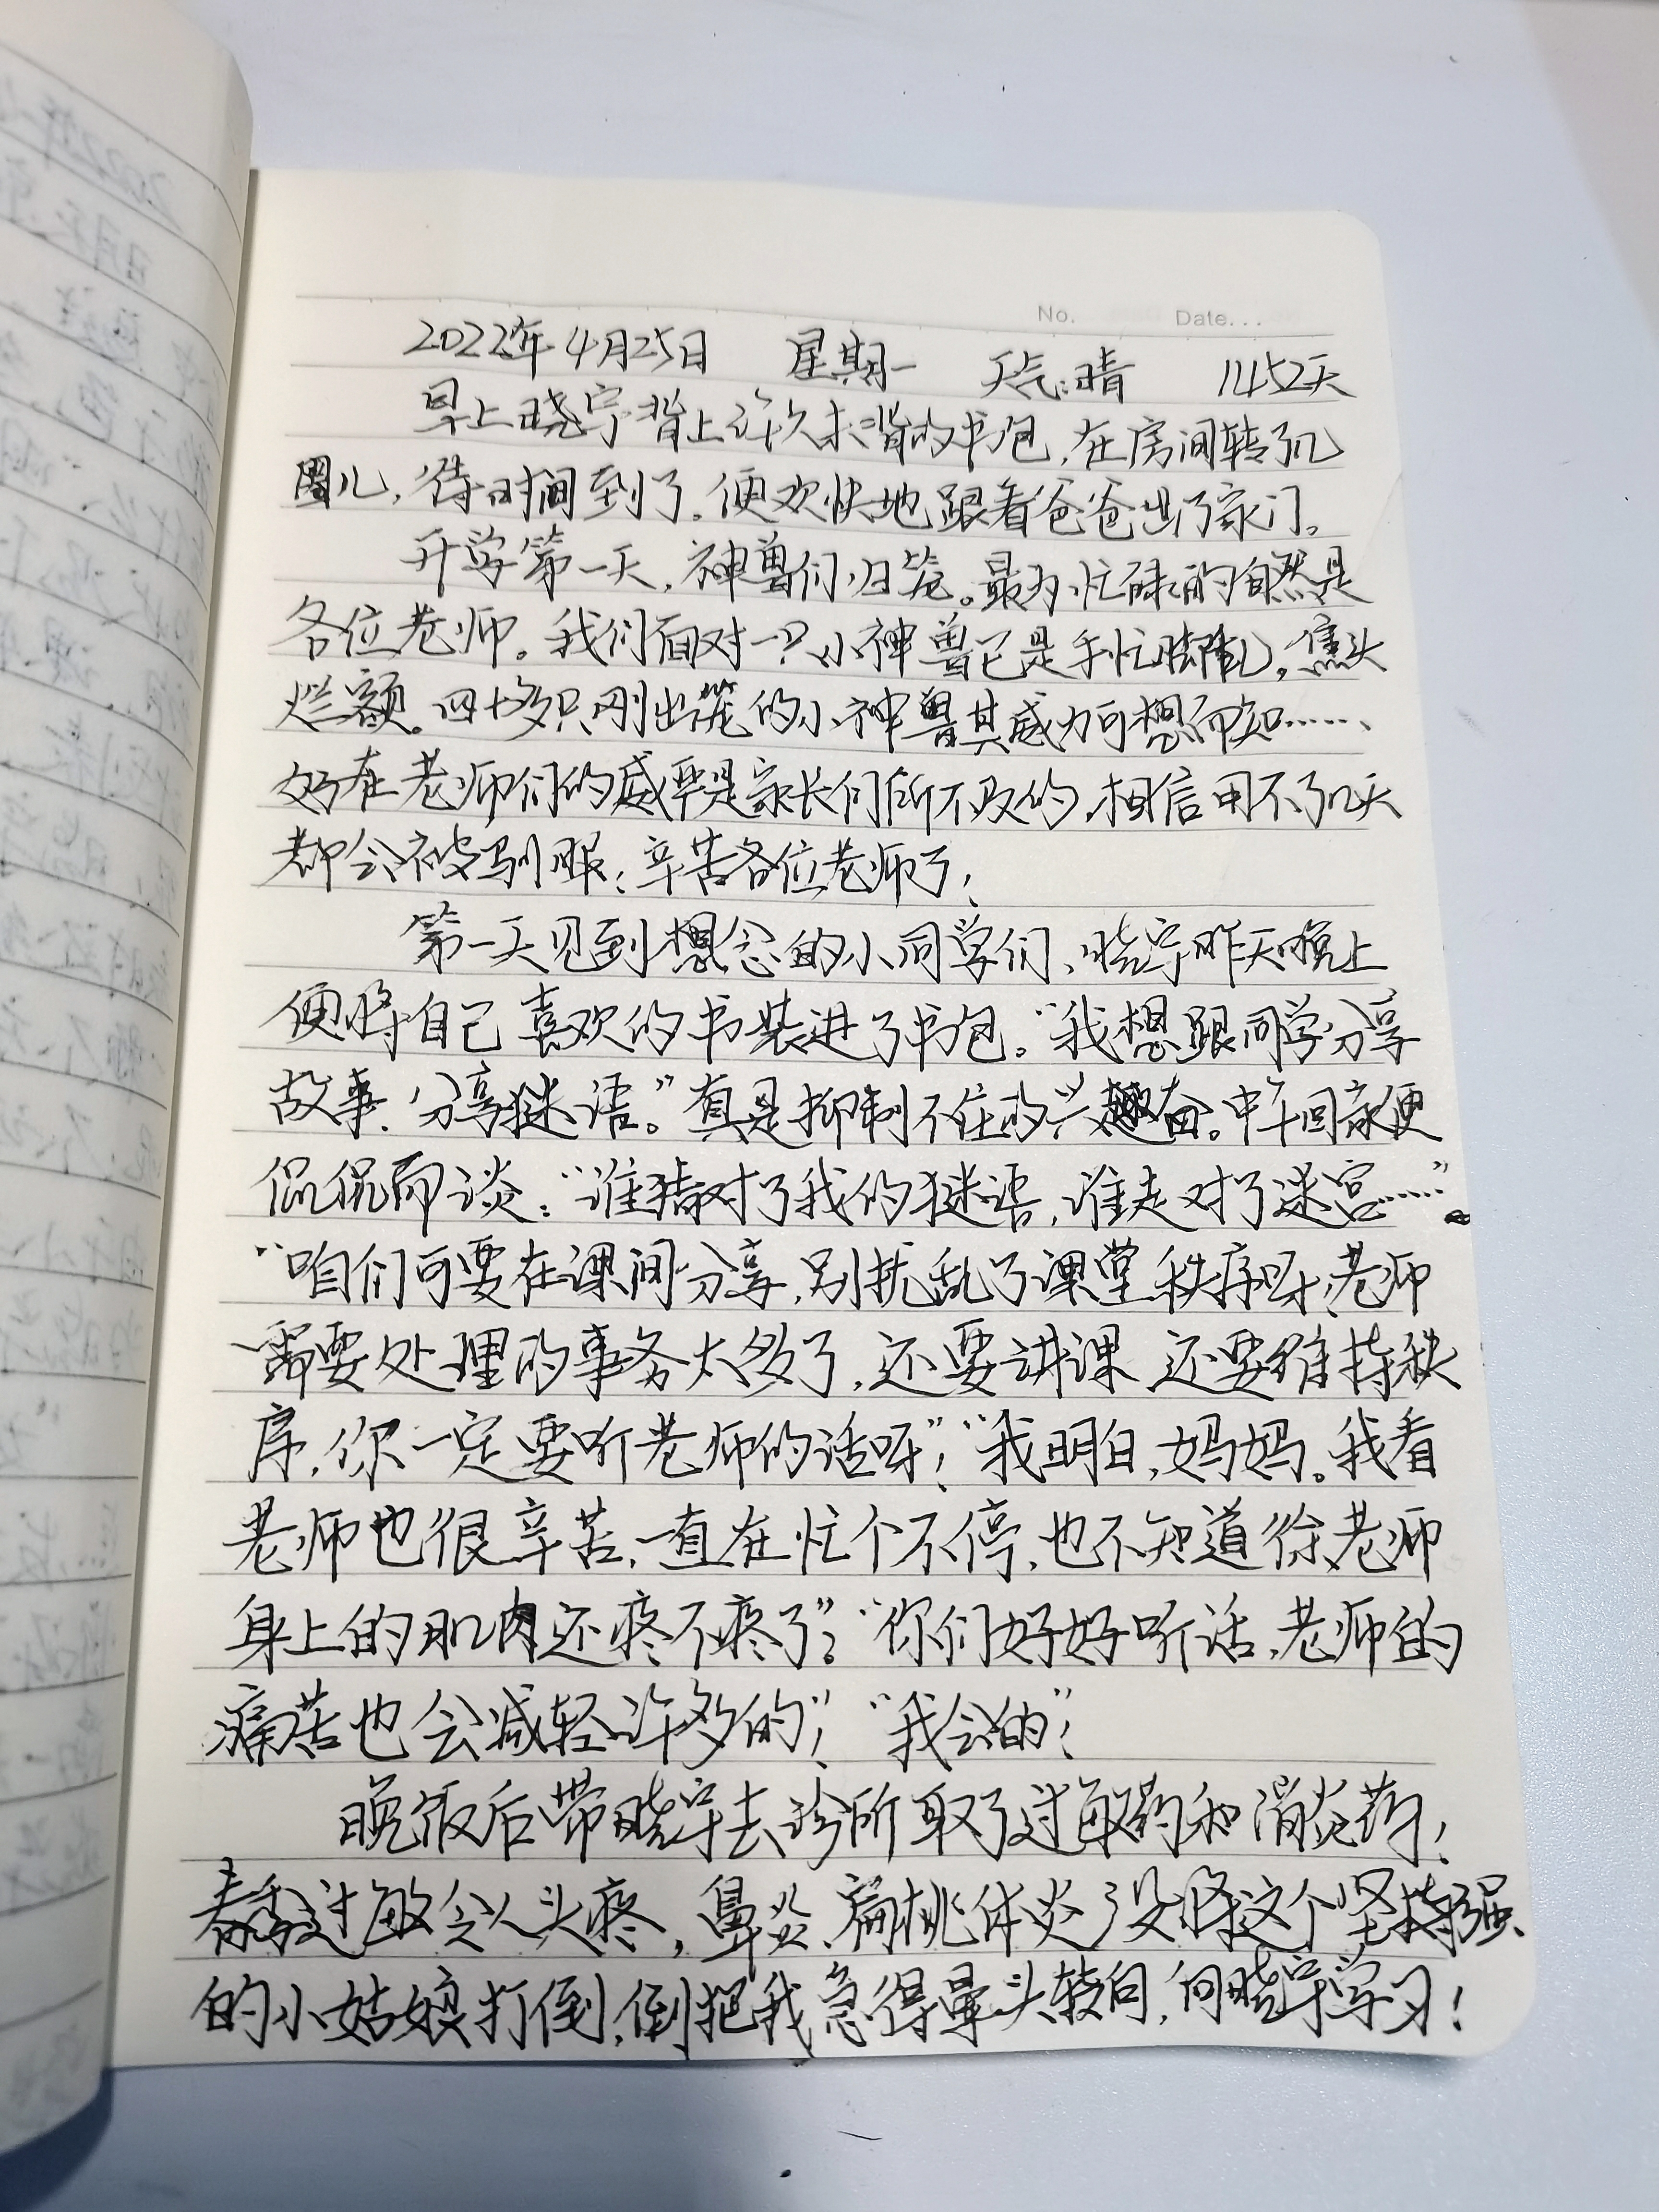 No. Date...
2022年4月25日 星期一 天气:晴 1452天
早上晓宁背上许久未背的书包,在房间转了几
圈儿,待时间到了,便欢快地跟着爸爸出了家门。
开学第一天,神兽们归笼。最为忙碌的自然是
各位老师。我们面对一只小神兽已是手忙脚乱,焦头
烂额。四十多只刚出笼的小神兽其威力可想而知……、
好在老师们的威严是家长们所不及的,相信用不了几天
都会被驯服;辛苦各位老师了!
第一天见到想念的小同学们、晓宁昨天晚上
便将自己喜欢的书装进了书包。“我想跟同学分享
故事、分享谜语。”真是抑制不住的兴奋。中午回家便
侃侃而谈:“谁猜对了我的谜语,谁走对了迷宫……”
“咱们可要在课间分享,别扰乱了课堂秩序呀,老师
需要处理的事务太多了,还要讲课 还要维持秩
序,你一定要听老师的话呀”!“我明白,妈妈。我看
老师也很辛苦,一直在忙个不停,也不知道徐老师
身上的肌肉还疼不疼了”?“你们好好听话,老师的
痛苦也会减轻许多的”!“我会的”!
晚饭后带晓宁去诊所取了过敏药和消炎药!
春季过敏令人头疼,鼻炎、扁桃体炎没将这个坚强
的小姑娘打倒,倒把我急得晕头转向,向晓宁学习!